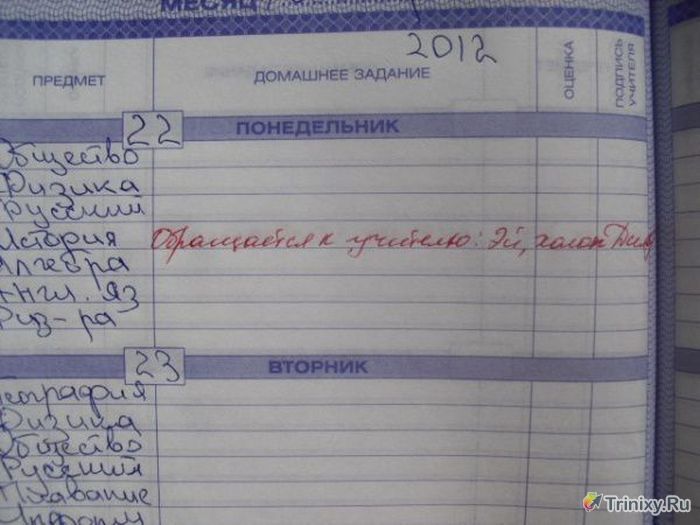 МЕСЯЦ
2012
ПРЕДМЕТ
ДОМАШНЕЕ ЗАДАНИЕ
ОЦЕНКА
ПОДПИСЬ УЧИТЕЛЯ
22 ПОНЕДЕЛЬНИК
Общество
Физика
Русский
История Обращается к учителю: Эй, холоп
Алгебра
Англ. яз
Физ-ра
23 ВТОРНИК
География
Физика
Общество
Русский
Плавание
Информ
Trinixy.Ru